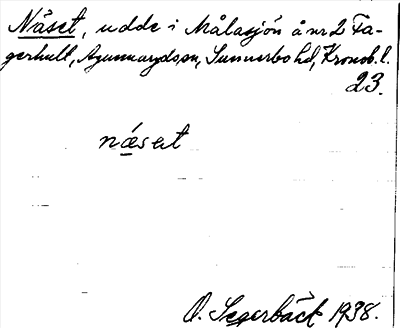 Näset, udde i Målasjön å nr 2 Fa-
gerhult, Agunnaryds sn, Sunnerbo hd, Kronob. l.
23.
næset
O. Segerbäck 1938.